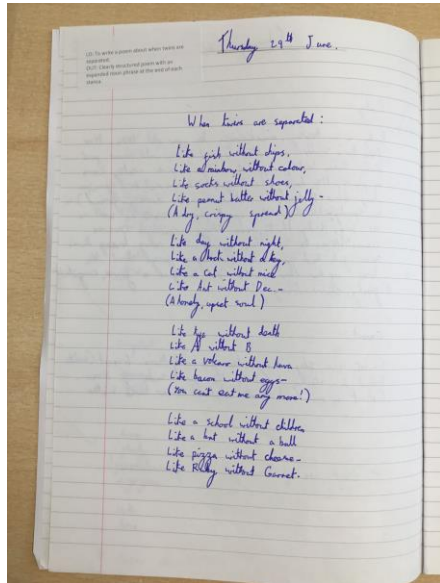 LO: To write a poem about when twins are
separated.
OUT: Clearly structured poem with an
expanded noun phrase at the end of each
stanza.
Thursday 29th June.
When twins are separated:
Like fish without chips,
Like a rainbow without colour,
Like socks without shoes,
Like peanut butter without jelly -
(A dry, crispy spread)
Like day without night,
Like a lock without a key,
Like a cat without mice
Like Ant without Dec -
(A lonely, upset soul)
Like without
Like A without B
Like a volcano without lava
Like bacon without eggs -
(You cant eat me any more!)
Like a school without children
Like a bat without a ball
Like pizza without cheese -
Like Ruby without Garnet.